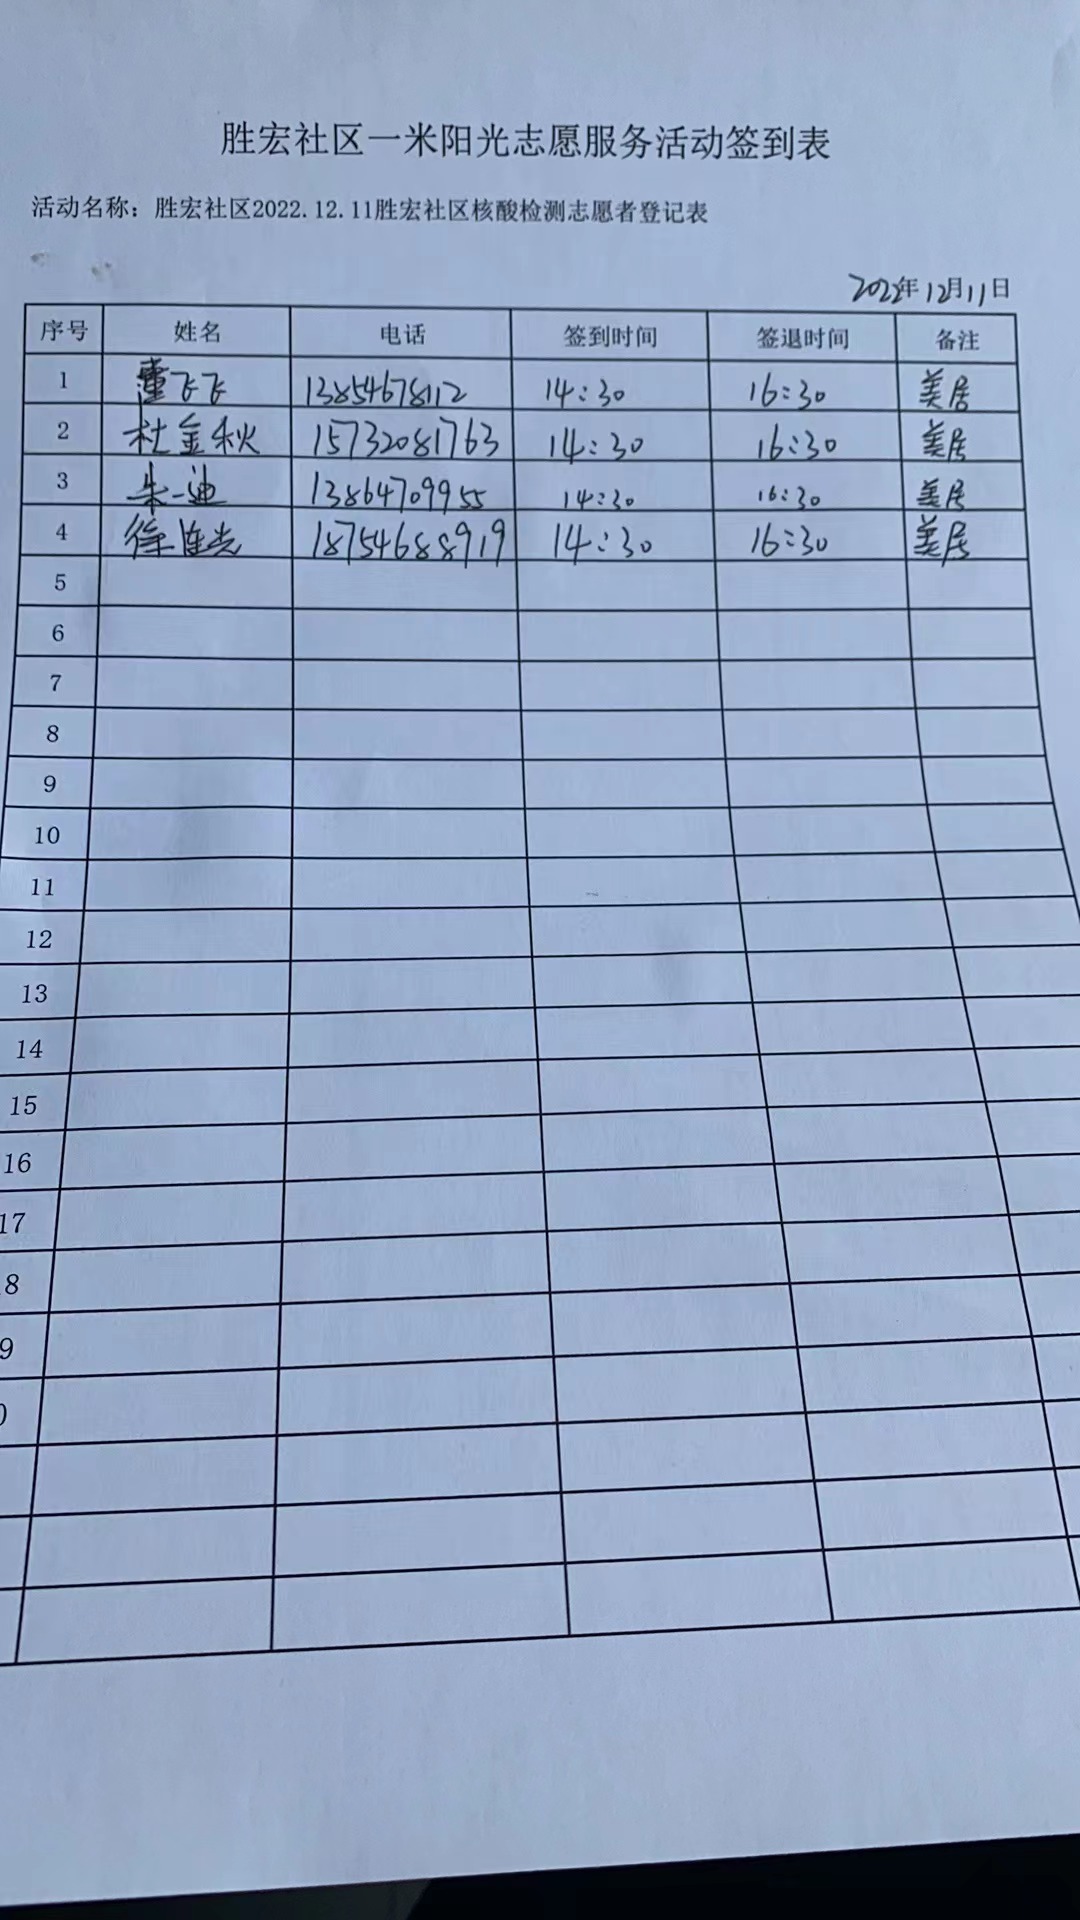 胜宏社区一米阳光志愿服务活动签到表
活动名称：胜宏社区2022.12.11胜宏社区核酸检测志愿者登记表
2022年12月11日
序号 姓名 电话 签到时间 签退时间 备注
1 董飞飞 13854678112 14:30 16:30 美居
2 杜金秋 15732081763 14:30 16:30 美居
3 朱一迪 13864709955 14:30 16:30 美居
4 徐连光 18754688919 14:30 16:30 美居
5
6
7
8
9
10
11
12
13
14
15
16
17
8
9
0